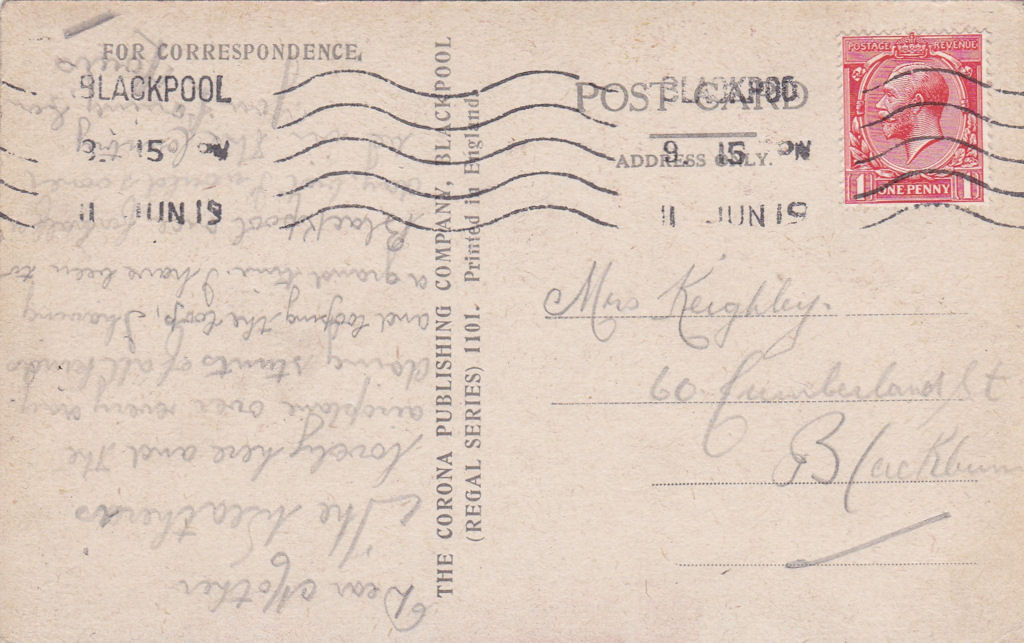 FOR CORRESPONDENCE.
BLACKPOOL
9 15 PM
11 JUN 19
POST CARD
ADDRESS ONLY.
BLACKPOO
9. 15 PM
11 JUN 19
POSTAGE REVENUE
1 ONE PENNY 1
Dear Mother
The Weather is
lovely here and the
aeroplane over every day
doing stunts of all kinds
and looping the loop, I having
a grand time. I have been to
Blackpool
day but I could
the country
THE CORONA PUBLISHING COMPANY, BLACKPOOL
(REGAL SERIES) 1101. Printed in England.
Mrs Keighley.
60 Cumberland St
Blackburn